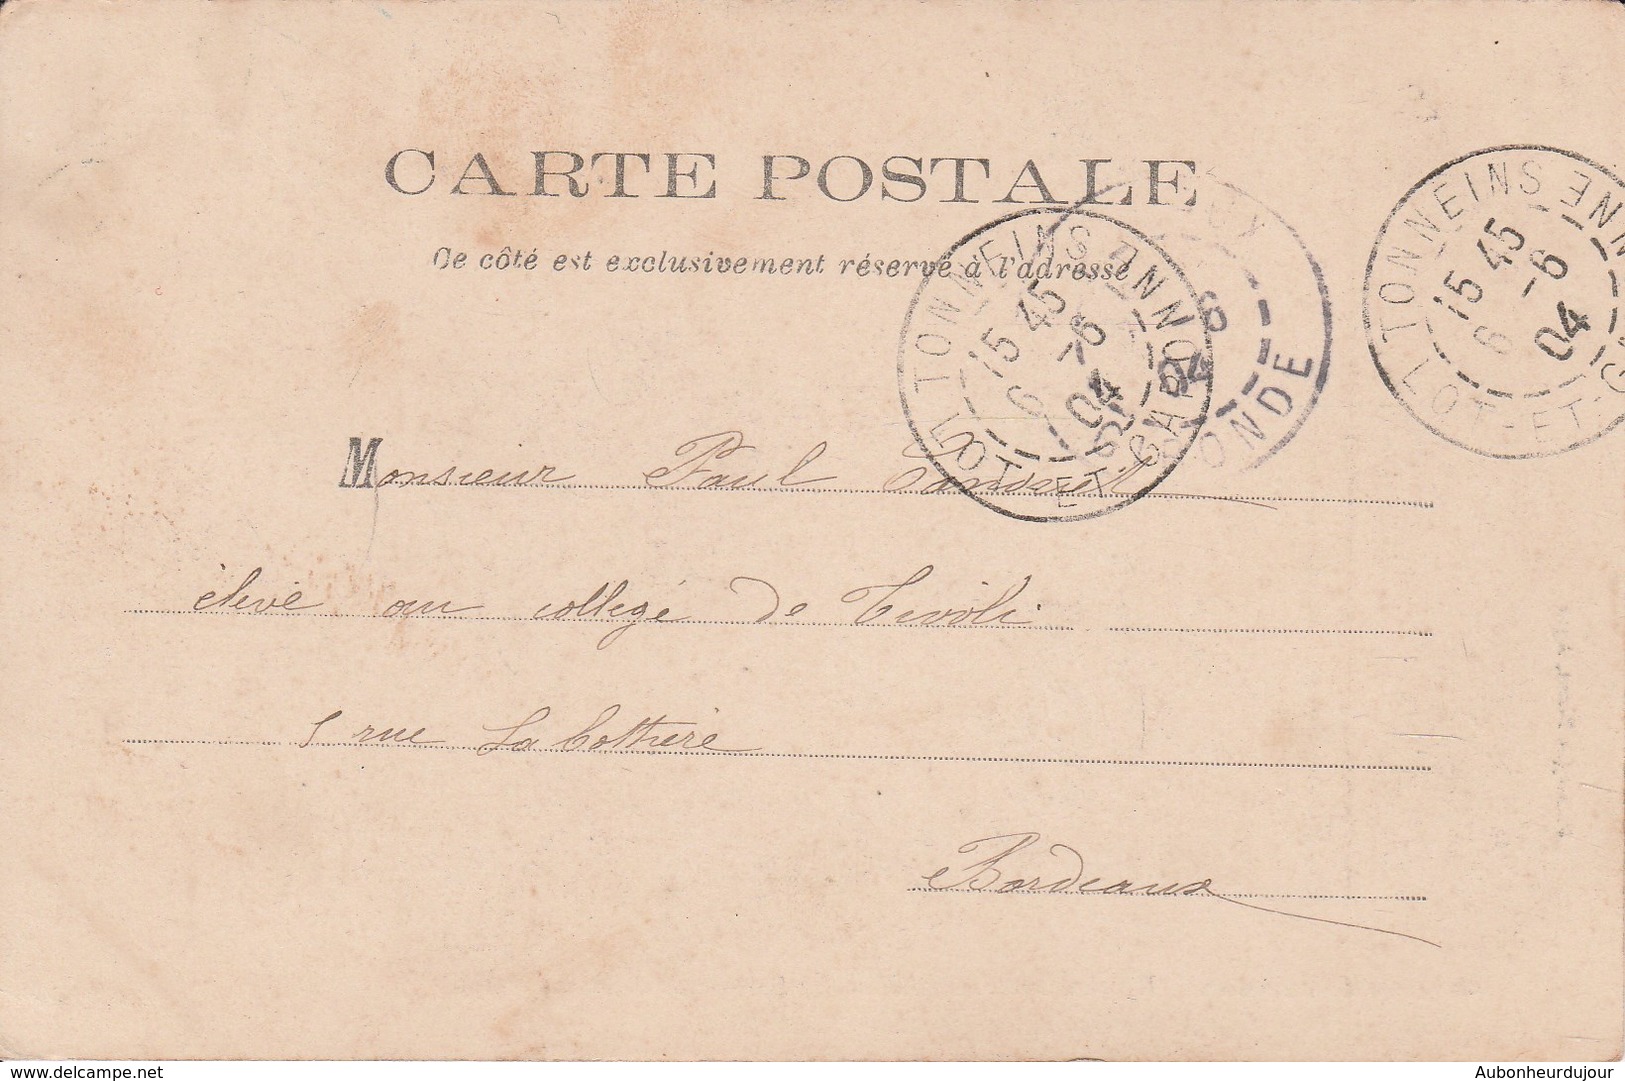 CARTE POSTALE
Ce côté est exclusivement réservé à l'adresse
TONNEINS
15 45
6 -6
04
LOT-ET-GARONNE
6
04
ONDE
TONNEINS
15 45
6 -6
04
LOT-ET-G
Monsieur Paul
élève au collège de Tivoli
5 rue La bottière
Bordeaux
www.delcampe.net
Aubonheurdujour